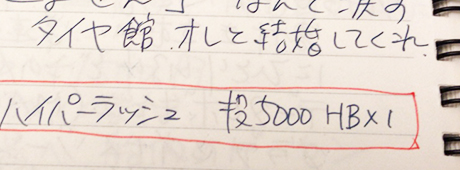 なんと涙の
タイヤ館.オレと結婚してくれ.
ハイパーラッシュ 投5000 HB×1